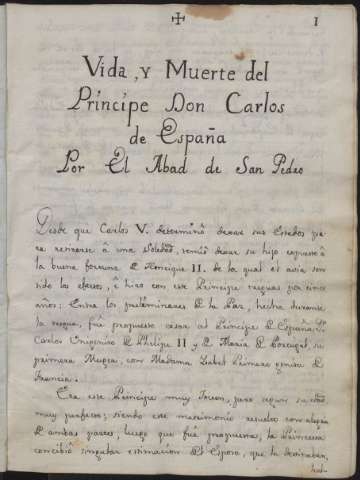 1
Vida, y Muerte del
Principe Don Carlos
de España
Por El Abad de San Pedro
Desde que Carlos V. determinó dexar sus Estados pa-
ra retirarse â una Soledad, temió dexar su hijo expuesto â
la buena fortuna de Henrique II. de la qual el avia sen-
tido los efectos, e hizo con este Principe treguas por cinco
años; Entre los preliminares de la Paz, hecha durante
la tregua, fué propuesto casar al Principe de España Dn
Carlos Unigenito de Phelipe II y de Maria de Portugal, su
primera Muger, con Madama Isabel Primera de
Francia.
Era este Principe muy Joven, para
muy perfecto; siendo este matrimonio resuelto con alegria
de ambas partes, luego que fué propuesto, la Princesa
concibió singular estimacion del Esposo, que la destinaban,